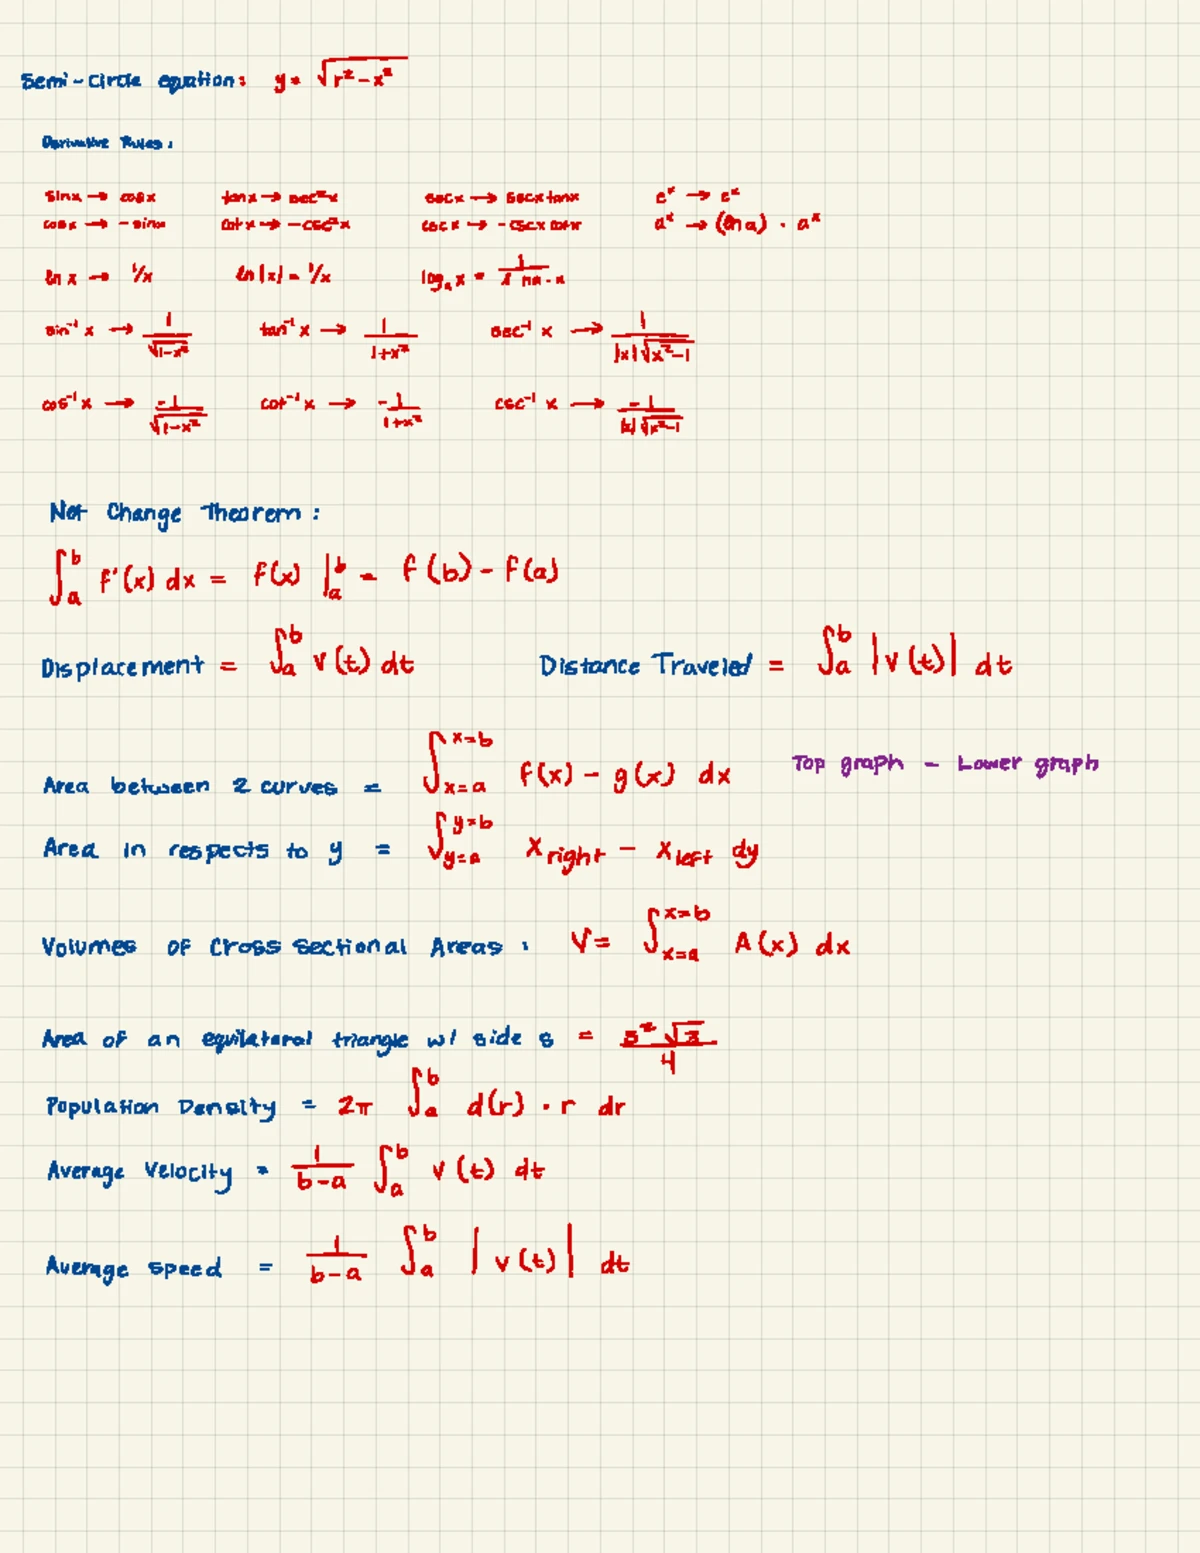 Semi-Circle equation: y = √(r² - x²)
Derivative Rules:
sinx → cosx    tanx → sec²x    secx → secxtanx    eˣ → eˣ
cosx → -sinx    cotx → -csc²x    cscx → -cscxcotx    aˣ → (ln a) · aˣ
ln x → 1/x    ln|x| = 1/x    logₐx = 1/(lna·x)
sin⁻¹x → 1/√(1-x²)    tan⁻¹x → 1/(1+x²)    sec⁻¹ x → 1/(|x|√(x²-1))
cos⁻¹x → -1/√(1-x²)    cot⁻¹x → -1/(1+x²)    csc⁻¹ x → -1/(|x|√(x²-1))
Net Change Theorem:
∫ₐᵇ f'(x) dx = f(x) |ₐᵇ = f(b) - f(a)
Displacement = ∫ₐᵇ v(t) dt    Distance Traveled = ∫ₐᵇ |v(t)| dt
Area between 2 curves = ∫_{x=a}^{x=b} f(x) - g(x) dx    Top graph - Lower graph
Area in respects to y = ∫_{y=a}^{y=b} x_right - x_left dy
Volumes of Cross sectional Areas: V = ∫_{x=a}^{x=b} A(x) dx
Area of an equilateral triangle w/ side s = s²√3/4
Population Density = 2π ∫ₐᵇ d(r) · r dr
Average Velocity = 1/(b-a) ∫ₐᵇ v(t) dt
Average speed = 1/(b-a) ∫ₐᵇ |v(t)| dt